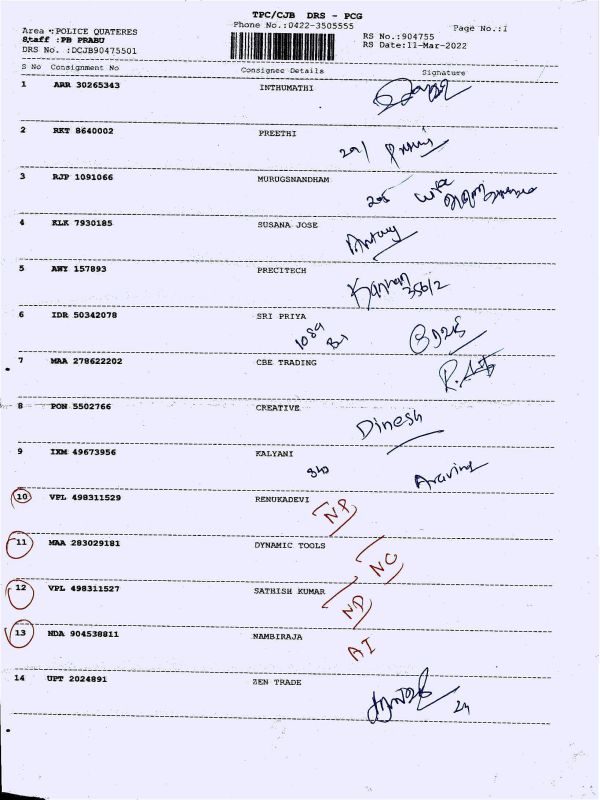 TPC/CJB DRS - PCG
Area :POLICE QUATERES Phone No.:0422-3505555 Page No.:1
Staff :PB PRABU RS No.:904755
DRS No. :DCJB90475501 RS Date:11-Mar-2022
S No Consignment No Consignee Details Signature
1 ARR 30265343 INTHUMATHI
2 RKT 8640002 PREETHI
201
3 RJP 1091066 MURUGSNANDHAM
205 wife
4 KLK 7930185 SUSANA JOSE
Antony
5 AWY 157893 PRECITECH
Kannan
356/2
6 IDR 50342078 SRI PRIYA
1089
7 MAA 278622202 CBE TRADING
8 PON 5502766 CREATIVE
Dinesh
9 IXM 49673956 KALYANI
Aravind
10 VPL 498311529 RENUKADEVI
NP
11 MAA 283029181 DYNAMIC TOOLS
NC
12 VPL 498311527 SATHISH KUMAR
ND
13 NDA 904538811 NAMBIRAJA
AI
14 UPT 2024891 ZEN TRADE
24